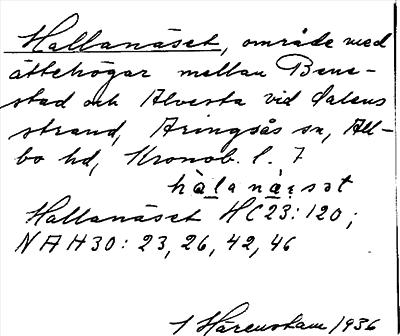 Hallanäset, område med
ättehögar mellan Bene-
stad och Alvesta vid Salens
strand, Aringsås sn, All-
bo hd, Kronob. l. 7
hàlanä̀sət
Hallanäset HC23:120;
NAH30: 23, 26, 42, 46
1936